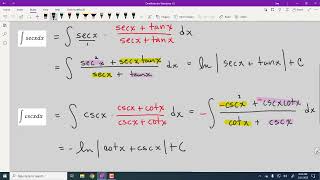 ∫ secx dx = ∫ secx/1 · (secx + tanx)/(secx + tanx) dx
= ∫ (sec²x + secxtanx)/(secx + tanx) dx = ln|secx + tanx| + C
∫ cscx dx = ∫ cscx · (cscx + cotx)/(cscx + cotx) dx = -∫ (-csc²x + -cscxcotx)/(cotx + cscx) dx
= -ln|cotx + cscx| + C